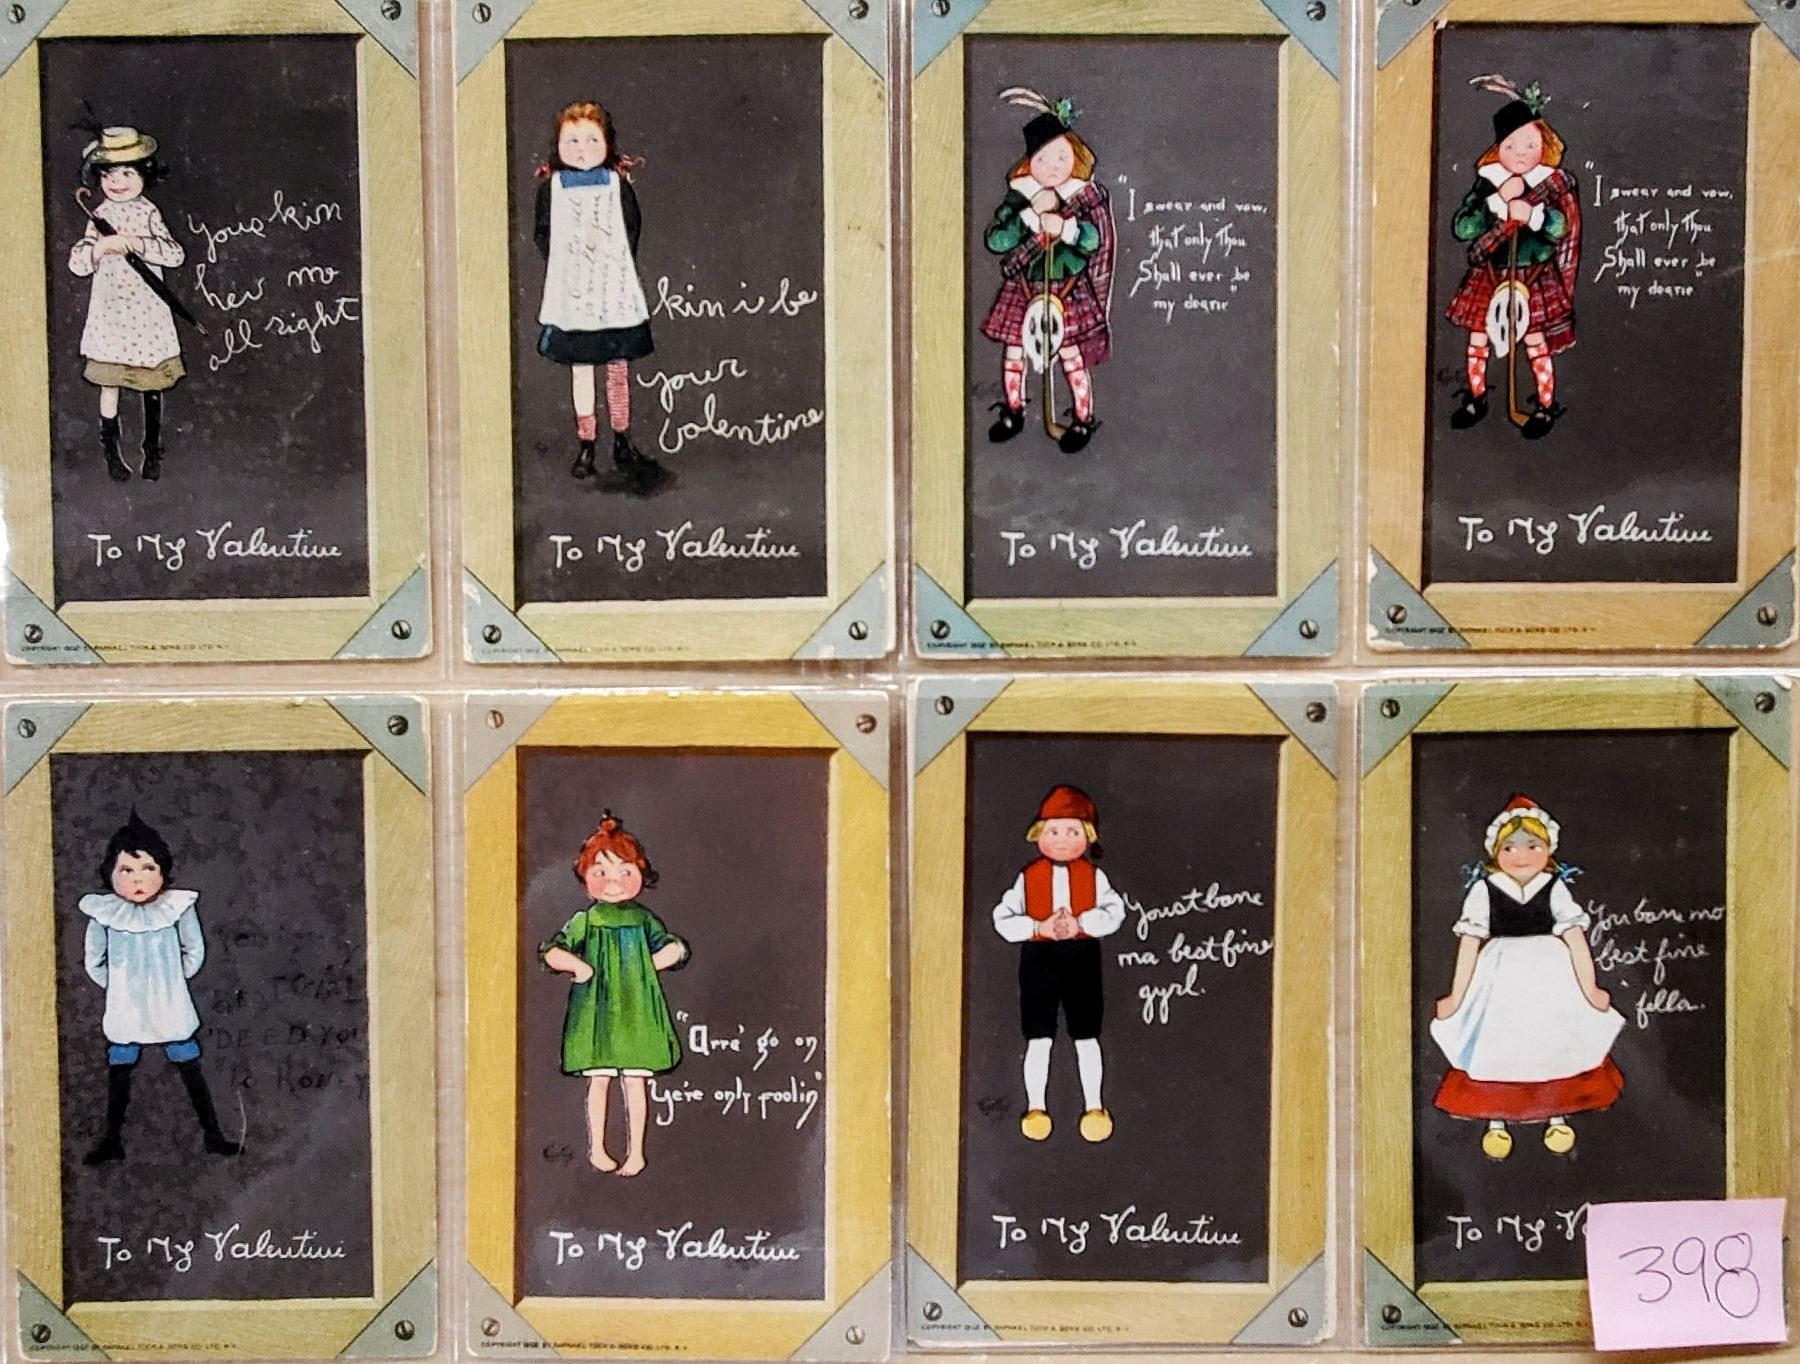 youse kin
hev me
all right
To My Valentine
COPYRIGHT 1902 BY RAPHAEL TUCK & SONS CO LTD. N.Y.
kin i be
your
valentine
To My Valentine
COPYRIGHT 1902 BY RAPHAEL TUCK & SONS CO LTD. N.Y.
"I swear and vow,
that only Thou
Shall ever be
my dearie"
To My Valentine
COPYRIGHT 1902 BY RAPHAEL TUCK & SONS CO LTD. N.Y.
"I swear and vow,
that only Thou
Shall ever be
my dearie"
To My Valentine
COPYRIGHT 1902 BY RAPHAEL TUCK & SONS CO LTD. N.Y.
'DEED YO'
HONEY
To My Valentine
COPYRIGHT 1902 BY RAPHAEL TUCK & SONS CO LTD. N.Y.
"Arra' go on
Ye're only foolin'"
To My Valentine
COPYRIGHT 1902 BY RAPHAEL TUCK & SONS CO LTD. N.Y.
Youst bane
ma best fine
gyrl.
To My Valentine
COPYRIGHT 1902 BY RAPHAEL TUCK & SONS CO LTD. N.Y.
You bane mo
best fine
'fella.
To My
COPYRIGHT 1902 BY RAPHAEL TUCK & SONS CO LTD.
398